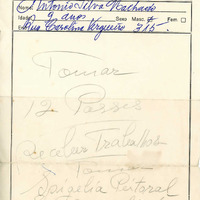 Nome: Antonio Silva Machado
Idade 9 anos Sexo Masc. Fem
End. Rua Carolina Vergueiro 315
Tomar
12 Passes
Receber Trabalhos
e Tomar
Espigelia Peitoral